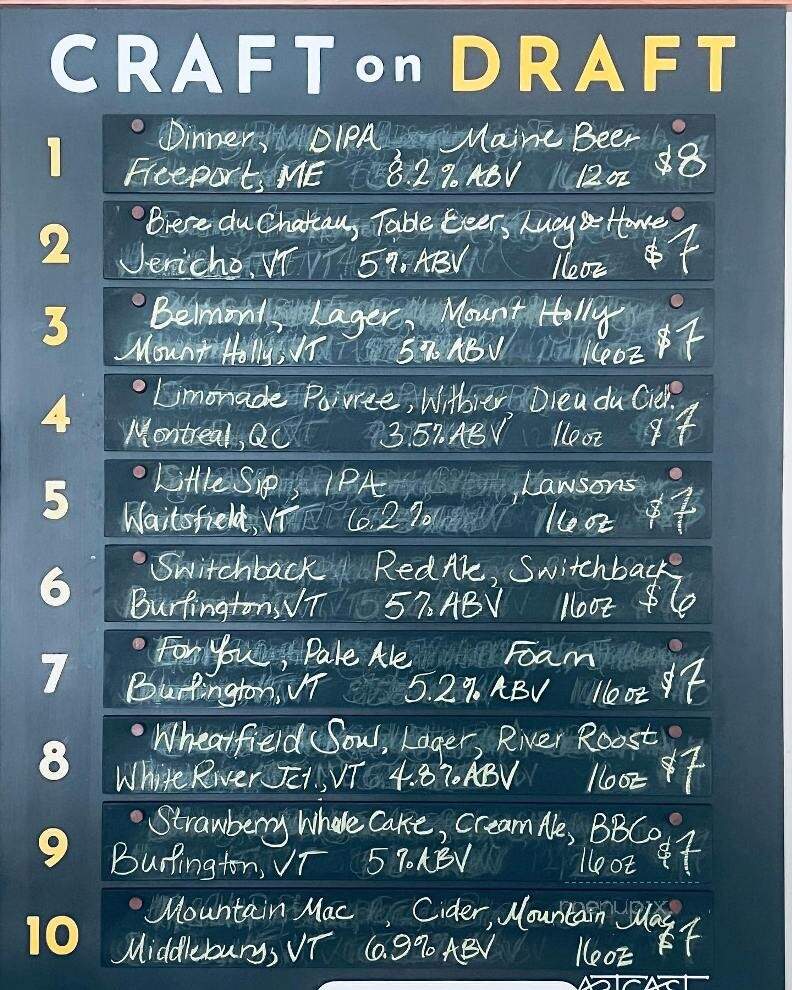 CRAFT on DRAFT
1
Dinner, DIPA, Maine Beer
Freeport, ME 8.2% ABV 12oz $8
2
Biere du Chateau, Table Beer, Lucy & Howe
Jericho, VT 5% ABV 16oz $7
3
Belmont, Lager, Mount Holly
Mount Holly, VT 5% ABV 16oz $7
4
Limonade Poivree, Witbier, Dieu du Ciel.
Montreal, QC 3.5% ABV 16oz $7
5
Little Sip, IPA, Lawsons
Waitsfield, VT 6.2% 16oz $7
6
Switchback Red Ale, Switchback
Burlington, VT 5% ABV 16oz $6
7
For You, Pale Ale Foam
Burlington, VT 5.2% ABV 16oz $7
8
Wheatfield Soul, Lager, River Roost
White River Jct., VT 4.8% ABV 16oz $7
9
Strawberry Whale Cake, Cream Ale, BBCo
Burlington, VT 5% ABV 16oz $7
10
Mountain Mac, Cider, Mountain Mac
Middlebury, VT 6.9% ABV 16oz $7
menupix
ARTCAST